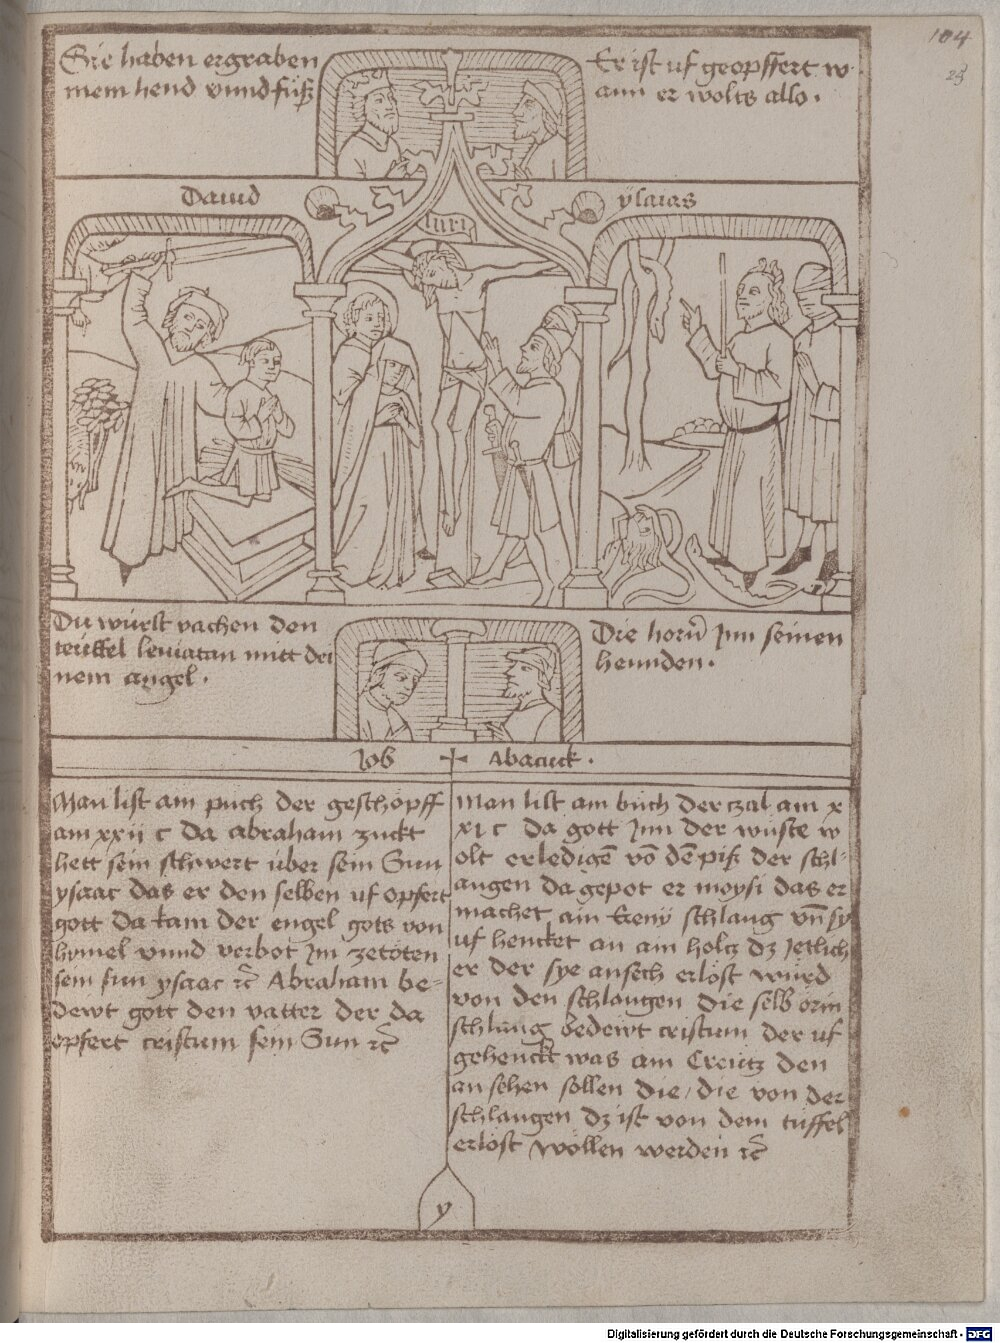 104
25
Sie haben ergraben
mein hend vnnd füß
Er ist uf geopffert w
ann er wolts allso .
Dauid
ysaias
INRI
Du würst vachen den
teüffel leuiatan mitt dei
nem angel .
Die horn̄ Jnn seinen
hennden .
Job
Abacuck .
Man list am puch der geschöpff
am xxij c da abraham zuckt
hett sein schwert über sein Sun
ysaac das er den selben uf opfert
gott da kam der engel gots von
hymel vnnd verbot jm zetöten
sein sun ysaac ⁊c̄ Abraham be-
dewt gott den vatter der da
opfert cristum sein Sun ⁊c̄
Man list am buch der czal am x
xi c da gott Jnn der wüste w
olt erledigē vō dē piß der schl-
angen da gepot er moysi das er
machet ain Ereny schlang vn̄ sy
uf hencket an am holtz dz Jetlich
er der sye ansech erlöst würd
von den schlangen die selb örin
schlang bedewt cristum der uf
gehenckt was am Creütz den
an sehen söllen die / die von der
schlangen dz ist von dem tüffel
erlöst wöllen werden ⁊c̄
y
Digitalisierung gefördert durch die Deutsche Forschungsgemeinschaft - DFG